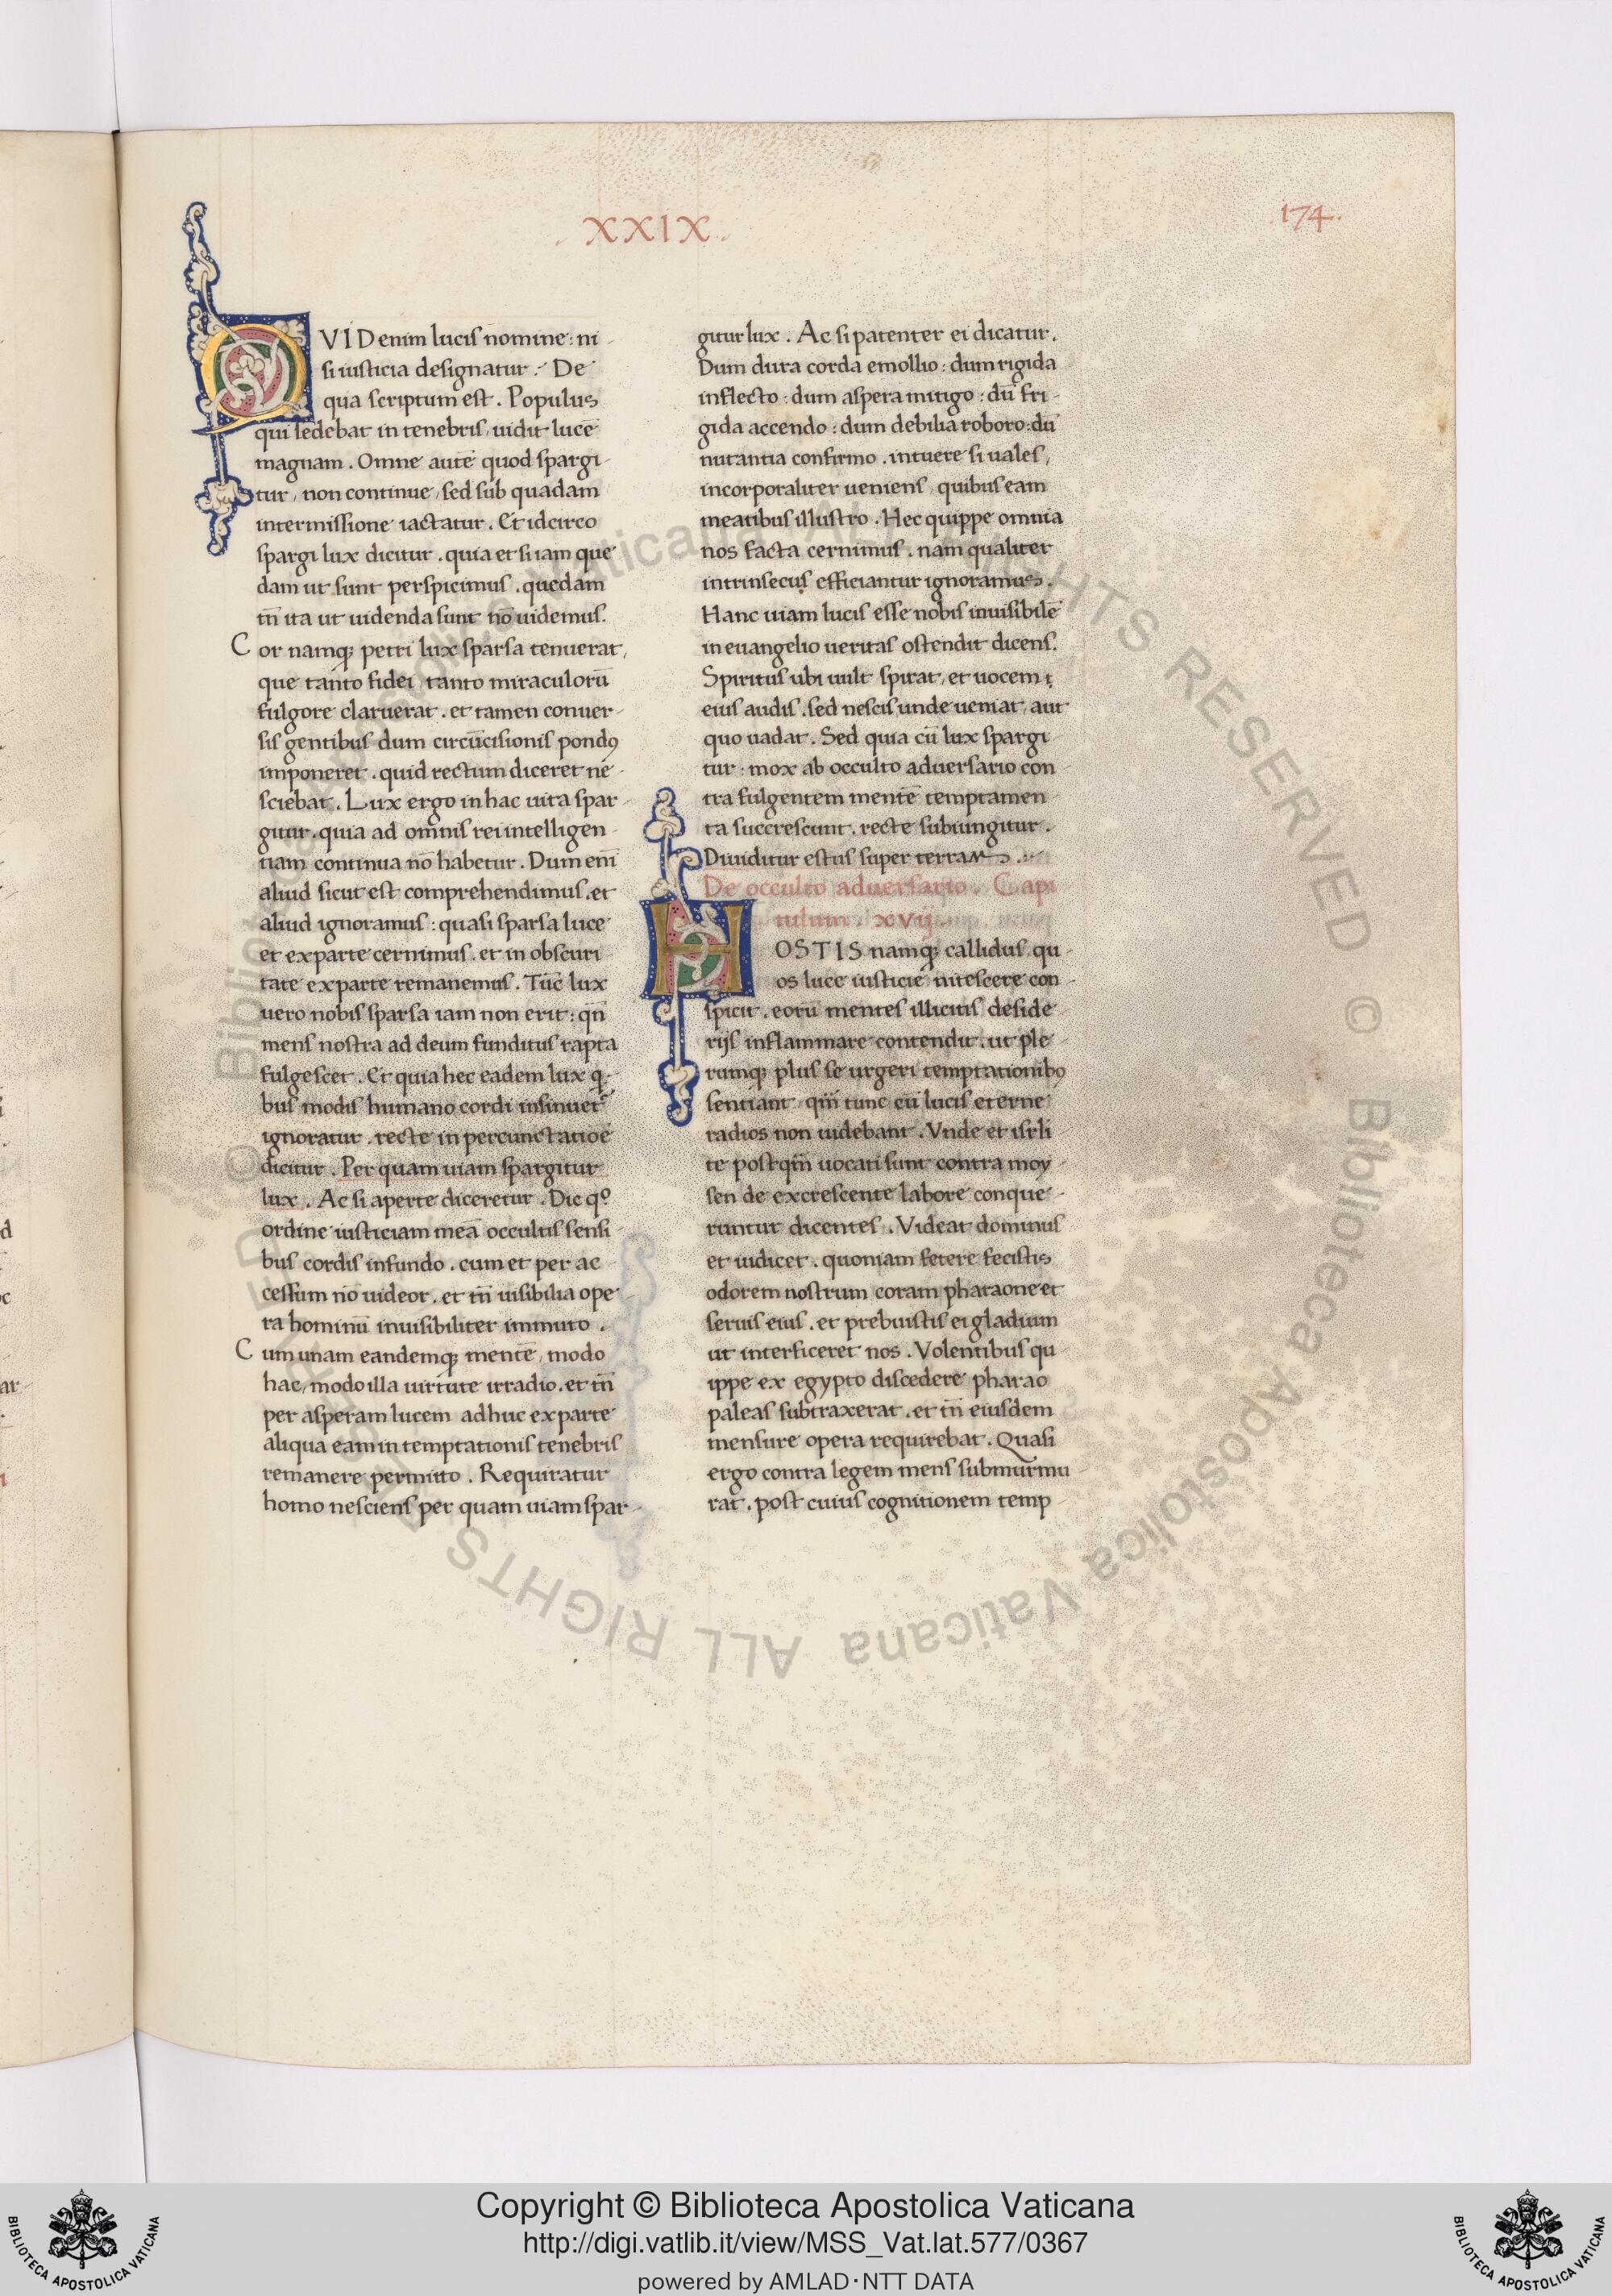 .XXIX.
174.
QVID enim lucis nomine: ni-
si iusticia designatur. De
qua scriptum est. Populus
qui sedebat in tenebris, uidit lucē
magnam. Omne autē quod spargi-
tur, non continue, sed sub quadam
intermissione iactatur. Et idcirco
spargi lux dicitur. quia et si iam que
dam ut sunt perspicimus. quedam
tn̄ ita ut uidenda sunt nō uidemus.
Cor namq; petri lux sparsa tenuerat,
que tanto fidei, tanto miraculorū
fulgore claruerat. et tamen conuer-
sis gentibus dum circūcisionis pondꝰ
imponeret. quid rectum diceret ne-
sciebat. Lux ergo in hac uita spar-
gitur. quia ad omnis rei intelligen-
tiam continua nō habetur. Dum eni͞
aliud sicut est comprehendimus. et
aliud ignoramus: quasi sparsa luce
et ex parte cernimus. et in obscuri-
tate ex parte remanemus. Tūc lux
uero nobis sparsa iam non erit: qn̄
mens nostra ad deum funditus rapta
fulgescet. Et quia hec eadem lux q-
bus modis humano cordi insinuet᷑
ignoratur. recte in percunctatiōe
dicitur. Per quam uiam spargitur
lux. Ac si aperte diceretur. Dic qº
ordine iusticiam meā occultis sensi-
bus cordis infundo. cum et per ac-
cessum nō uideor. et tn̄ uisibilia ope-
ra hominū inuisibiliter immuto.
Cum unam eandemq; mentē, modo
hac, modo illa uirtute irradio. et tn̄
per asperam lucem adhuc ex parte
aliqua eam in temptationis tenebris
remanere permitto. Requiratur
homo nesciens per quam uiam spar-
gitur lux. Ac si patenter ei dicatur.
Dum dura corda emollio: dum rigida
inflecto: dum aspera mitigo: dū fri-
gida accendo: dum debilia roboro: dū
nutantia confirmo. intuere si uales,
incorporaliter ueniens, quibus eam
meatibus illustro. Hec quippe omnia
nos facta cernimus. nam qualiter
intrinsecus efficiantur ignoramus.
Hanc uiam lucis esse nobis inuisibilē
in euangelio ueritas ostendit dicens.
Spiritus ubi uult spirat, et uocem
eius audis. sed nescis unde ueniat, aut
quo uadat. Sed quia cū lux spargi-
tur: mox ab occulto aduersario con-
tra fulgentem mentē temptamen-
ta succrescunt. recte subiungitur.
Diuiditur estus super terram.
De occulto aduersario. Capi
tulum. xvij.
HOSTIS namq; callidus qu-
os luce iusticie nitescere con-
spicit. eorū mentes illicitis deside-
rijs inflammare contendit. ut ple-
rumq; plus se urgeri temptationibꝰ
sentiant, qm̄ tunc cū lucis eterne
radios non uidebant. Vnde et isrli
te postqm̄ uocati sunt contra moy-
sen de excrescente labore conque-
runtur dicentes. Videat dominus
et iudicet. quoniam fetere fecistis
odorem nostrum coram pharaone et
seruis eius. et prebuistis ei gladium
ut interficeret nos. Volentibus qu-
ippe ex egypto discedere pharao
paleas subtraxerat. et tn̄ eiusdem
mensure opera requirebat. Quasi
ergo contra legem mens submurmu-
rat. post cuius cognitionem temp-
Copyright © Biblioteca Apostolica Vaticana
http://digi.vatlib.it/view/MSS_Vat.lat.577/0367
powered by AMLAD·NTT DATA
BIBLIOTECA APOSTOLICA VATICANA
BIBLIOTECA APOSTOLICA VATICANA
© Biblioteca Apostolica Vaticana ALL RIGHTS RESERVED © Biblioteca Apostolica Vaticana ALL RIGHTS RESERVED